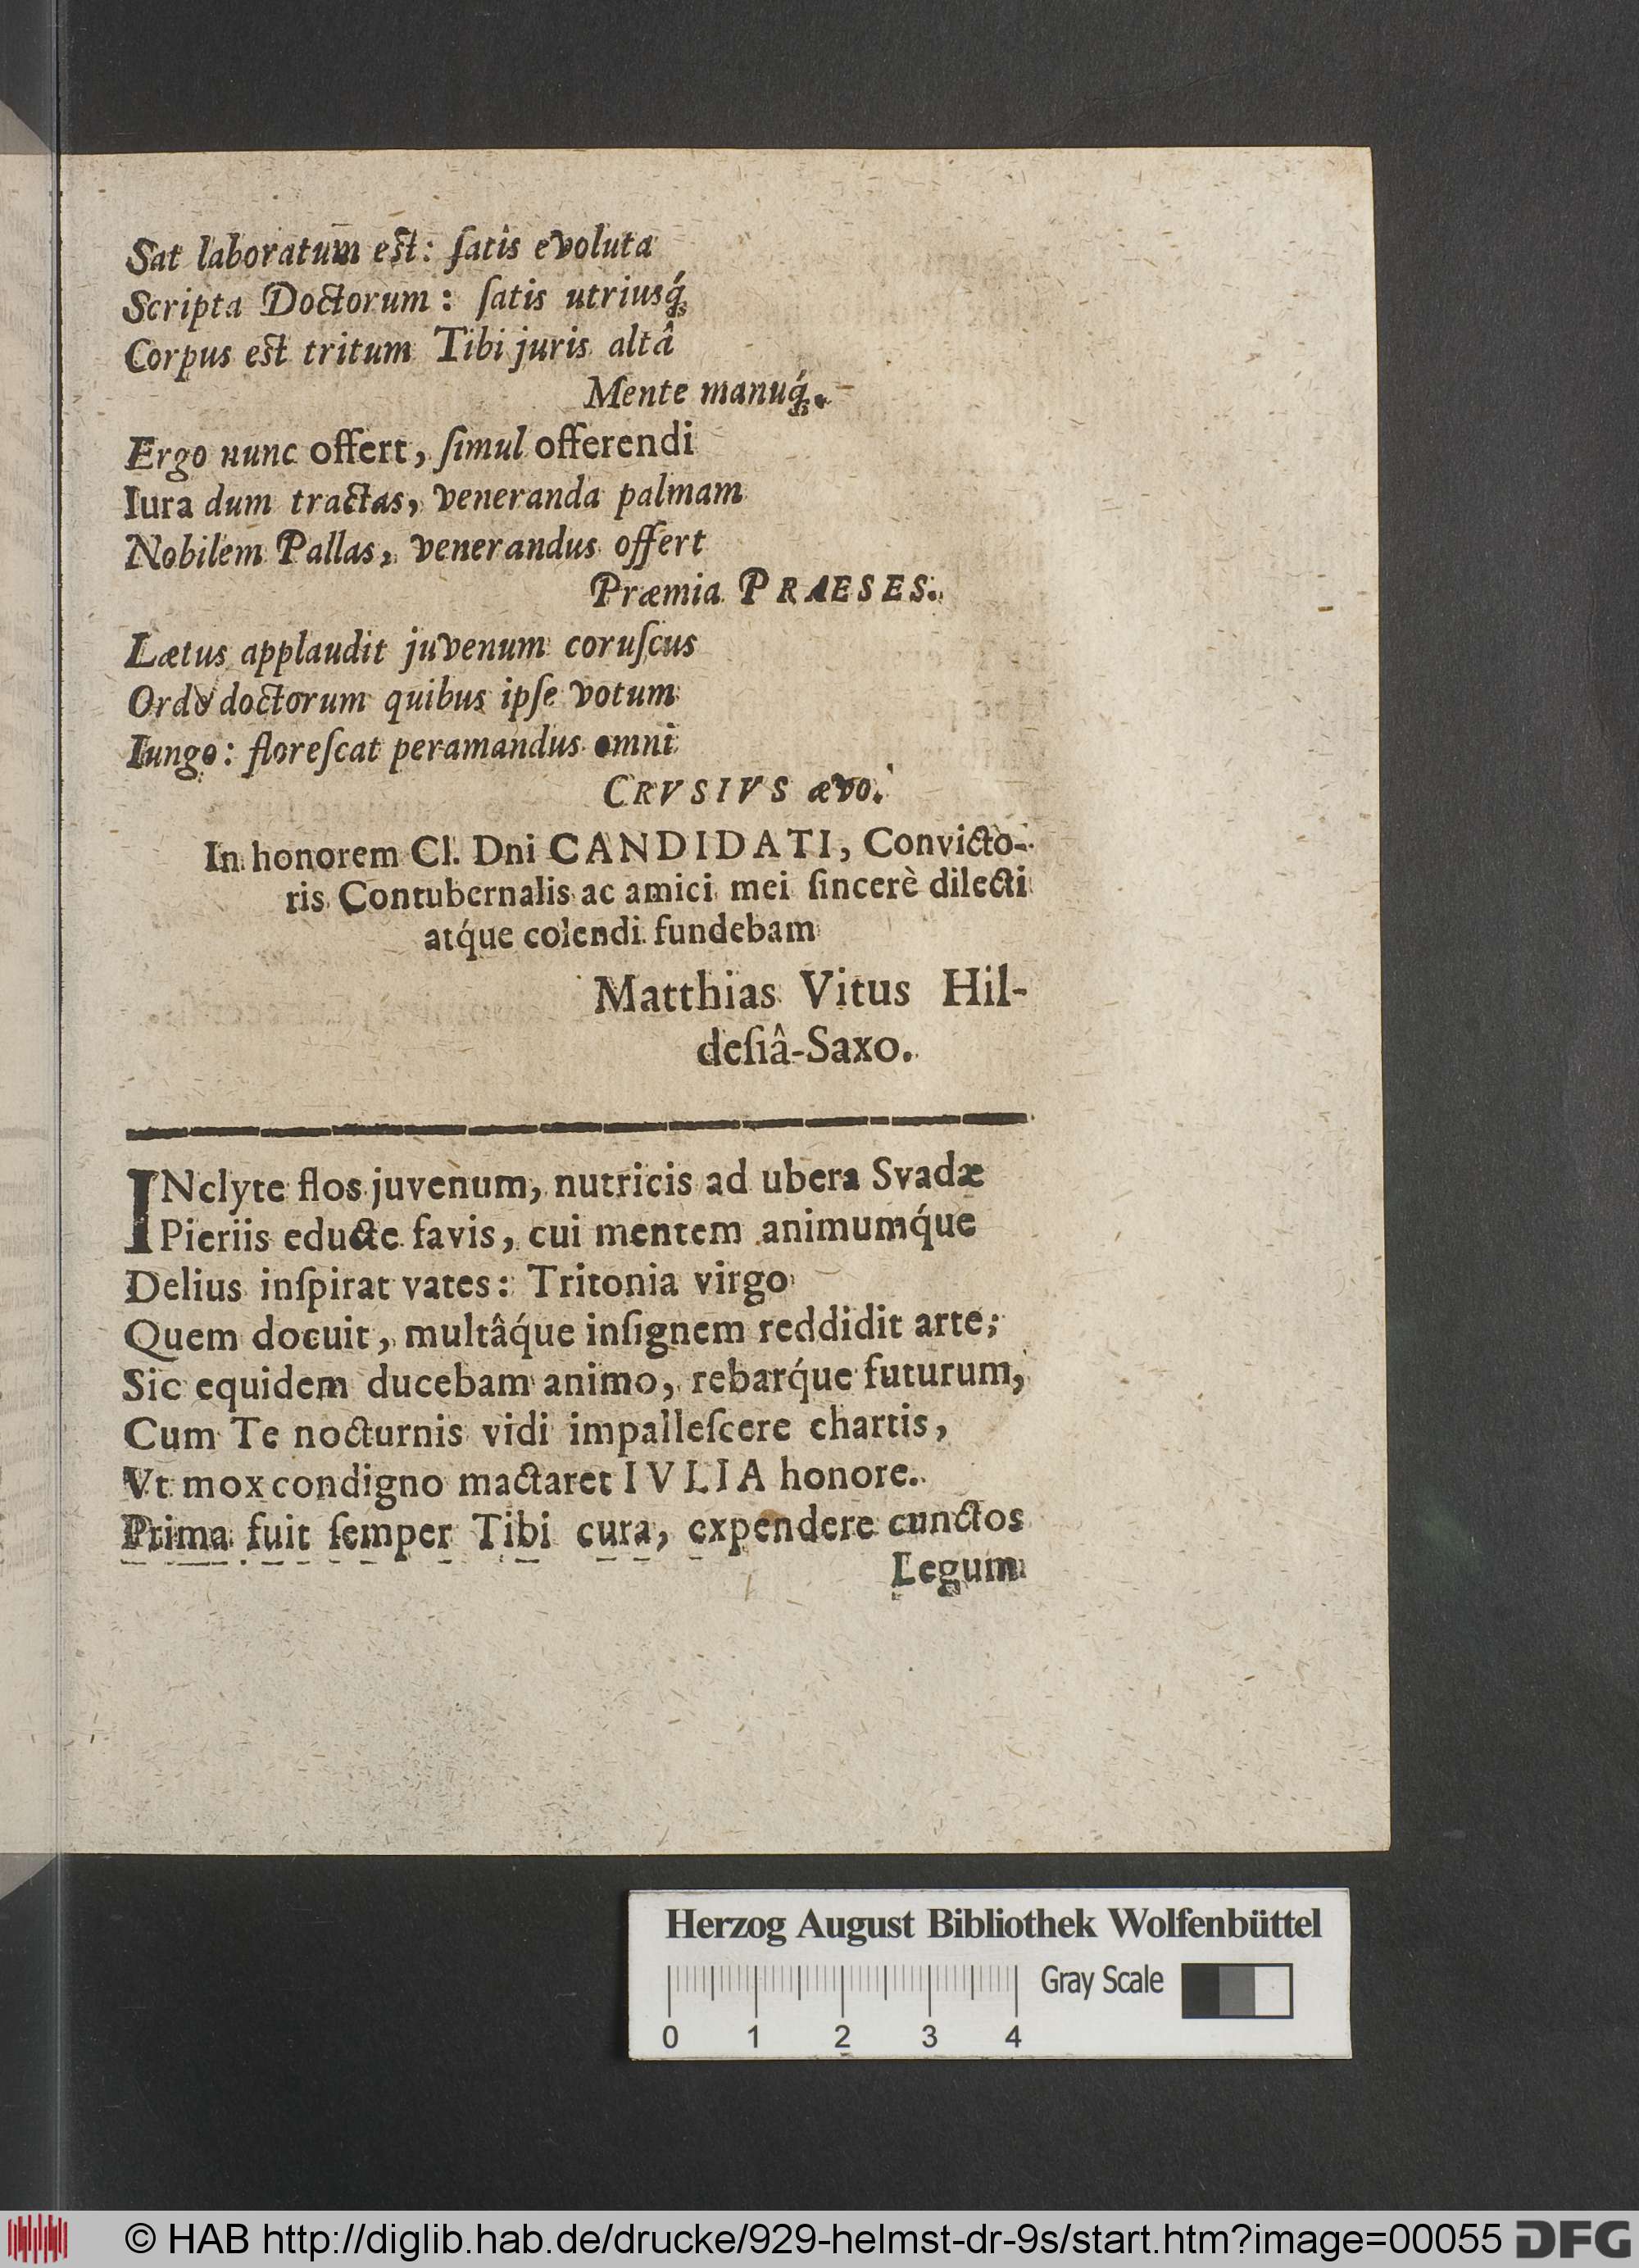 Sat laboratum est: ſatis evoluta
Scripta Doctorum: ſatis utriusq́;
Corpus est tritum Tibi juris altâ
Mente manuq́;.
Ergo nunc offert, ſimul offerendi
Iura dum tractas, veneranda palmam
Nobilem Pallas, venerandus offert
Præmia PRAESES.
Lætus applaudit juvenum coruſcus
Ordo doctorum quibus ipſe votum
Iungo: floreſcat peramandus omni
CRVSIVS ævo.
In honorem Cl. Dni CANDIDATI, Convicto-
ris Contubernalis ac amici mei ſincerè dilecti
atq́ue colendi fundebam
Matthias Vitus Hil-
deſiâ-Saxo.
INclyte flos juvenum, nutricis ad ubera Svadæ
Pieriis educte favis, cui mentem animumq́ue
Delius inſpirat vates: Tritonia virgo
Quem docuit, multâq́ue inſignem reddidit arte;
Sic equidem ducebam animo, rebarq́ue futurum,
Cum Te nocturnis vidi impalleſcere chartis,
Vt mox condigno mactaret IVLIA honore.
Prima fuit ſemper Tibi cura, expendere cunctos
Legum
Herzog August Bibliothek Wolfenbüttel
Gray Scale
0 1 2 3 4
© HAB http://diglib.hab.de/drucke/929-helmst-dr-9s/start.htm?image=00055 DFG